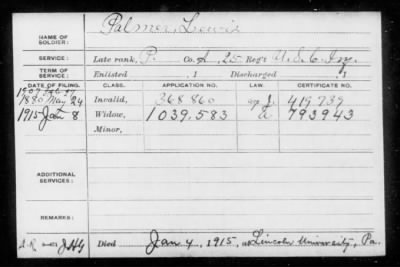 NAME OF SOLDIER: Palmer, Lewis
SERVICE: Late rank, P. Co. A, 25 Reg't U.S.C. Inf.
TERM OF SERVICE: Enlisted , 1 Discharged , 1
DATE OF FILING. CLASS. APPLICATION NO. LAW. CERTIFICATE NO.
1907 Feb
1880 May 24 Invalid, 368 860 419 739
1915 Jan 8 Widow, 1039.583 793943
Minor,
ADDITIONAL SERVICES:
REMARKS:
Died Jan. 4, 1915, at Lincoln University, Pa.